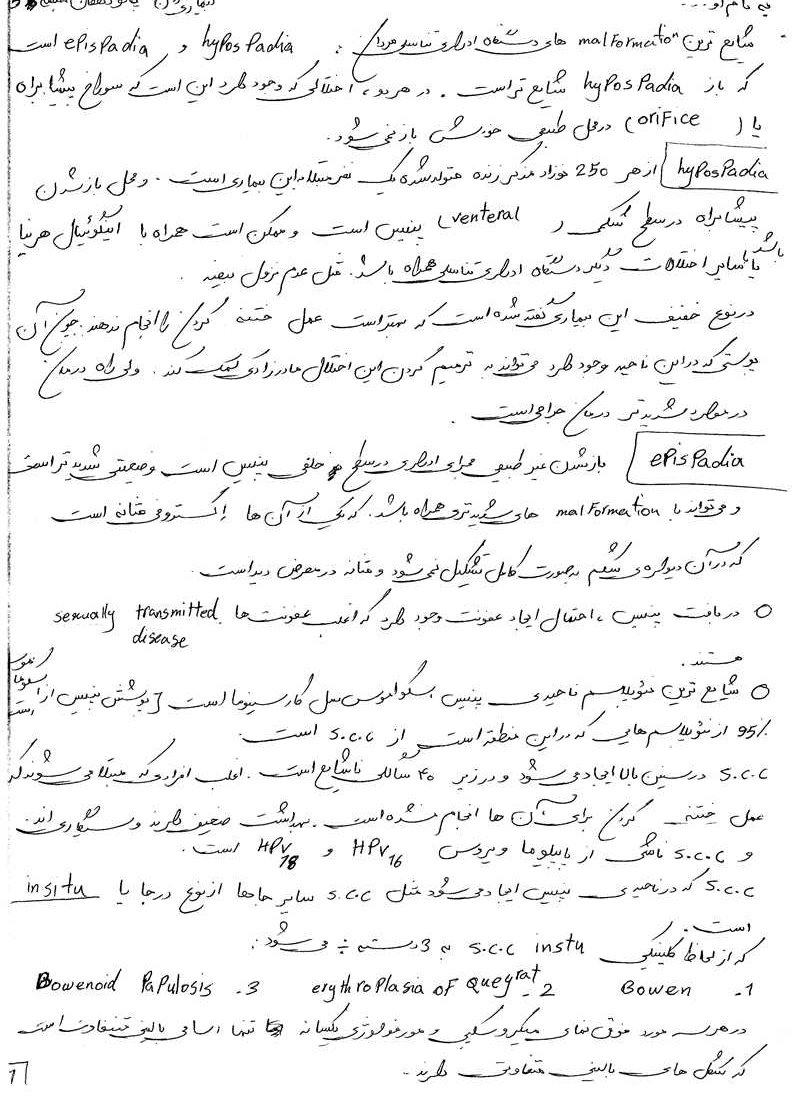 به نام او....
شایع ترین malformation های دستگاه ادراری تناسلی مردان: hypospadia و epispadia است
که باز hypospadia شایع تر است. در هر دو، اختلالی که وجود دارد این است که سوراخ پیشابراه
یا (orifice) در محل طبیعی خودش باز نمی شود.
hypospadia از هر 250 نوزاد مذکر زنده متولد شده یک نفر مبتلا به این بیماری است. و محل باز شدن
پیشابراه در سطح شکمی (venteral) پنیس است و ممکن است همراه با اینگوئینال هرنیا باشد
یا با سایر اختلالات دیگر دستگاه ادراری تناسلی همراه باشد. مثل عدم نزول بیضه.
در نوع خفیف این بیماری گفته شده است که بهتر است عمل ختنه کردن را انجام ندهند چون آن
پوستی که در این ناحیه وجود دارد می تواند به ترمیم کردن این اختلال مادرزادی کمک کند. ولی راه درمان
در موارد شدیدتر درمان جراحی است.
epispadia باز شدن غیر طبیعی مجرای ادراری در سطح خلفی پنیس است وضعیتی شدیدتر است
و می تواند با malformation های شدیدتری همراه باشد. که یکی از آن ها اکستروفی مثانه است
که در آن دیواره ی شکم به صورت کامل تشکیل نمی شود و مثانه در معرض دید است.
○ در بافت پنیس، احتمال ایجاد عفونت وجود دارد که اغلب عفونت ها sexually transmitted disease
هستند.
○ شایع ترین نئوپلاسم ناحیه ی پنیس اسکواموس سل کارسینوما است [پوشش پنیس از اسکواموس است
95% از نئوپلاسم هایی که در این منطقه است از S.C.C است.
S.C.C در سنین بالا ایجاد می شود و در زیر 40 سالگی ناشایع است. اغلب افرادی که مبتلا می شوند که
عمل ختنه کردن برای آن ها انجام نشده است. بهداشت ضعیف دارند و سیگاری اند.
و S.C.C ناشی از پاپیلوما ویروس HPV16 و HPV18 است.
S.C.C که در ناحیه ی پنیس ایجاد می شود مثل S.C.C سایر جاها از نوع درجا یا insitu
است.
که از لحاظ کلینیکی S.C.C instu به 3 دسته ÷ می شود:
1- Bowen 2- erythroplasia of Queyrat 3- Bowenoid Papulosis
در هر سه مورد فوق نمای میکروسکپی و مورفولوژی یکسانه تنها اسامی بالینی متفاوت است
که شکل های بالینی متفاوتی دارند.
1